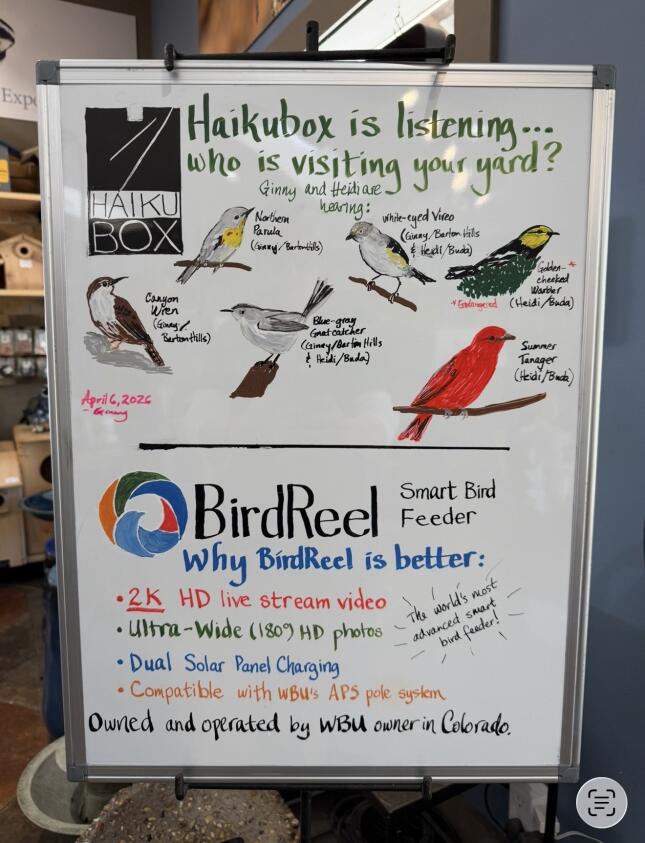 Expe
HAIKU
BOX
Haikubox is listening...
who is visiting your yard?
Ginny and Heidi are
hearing:
Northern
Parula
(Ginny/Barton Hills)
White-eyed Vireo
(Ginny/Barton Hills
& Heidi/Buda)
Golden- *
cheeked
Warbler
(Heidi/Buda)
* Endangered
Canyon
Wren
(Ginny/
Barton Hills)
Blue-gray
Gnatcatcher
(Ginny/Barton Hills
& Heidi/Buda)
Summer
Tanager
(Heidi/Buda)
April 6, 2026
- Ginny
BirdReel
Smart Bird
Feeder
Why BirdReel is better:
• 2K HD live stream video
• Ultra-Wide (180°) HD photos
• Dual Solar Panel Charging
• Compatible with WBU's APS pole system
The world's most
advanced smart
bird feeder!
Owned and operated by WBU owner in Colorado.